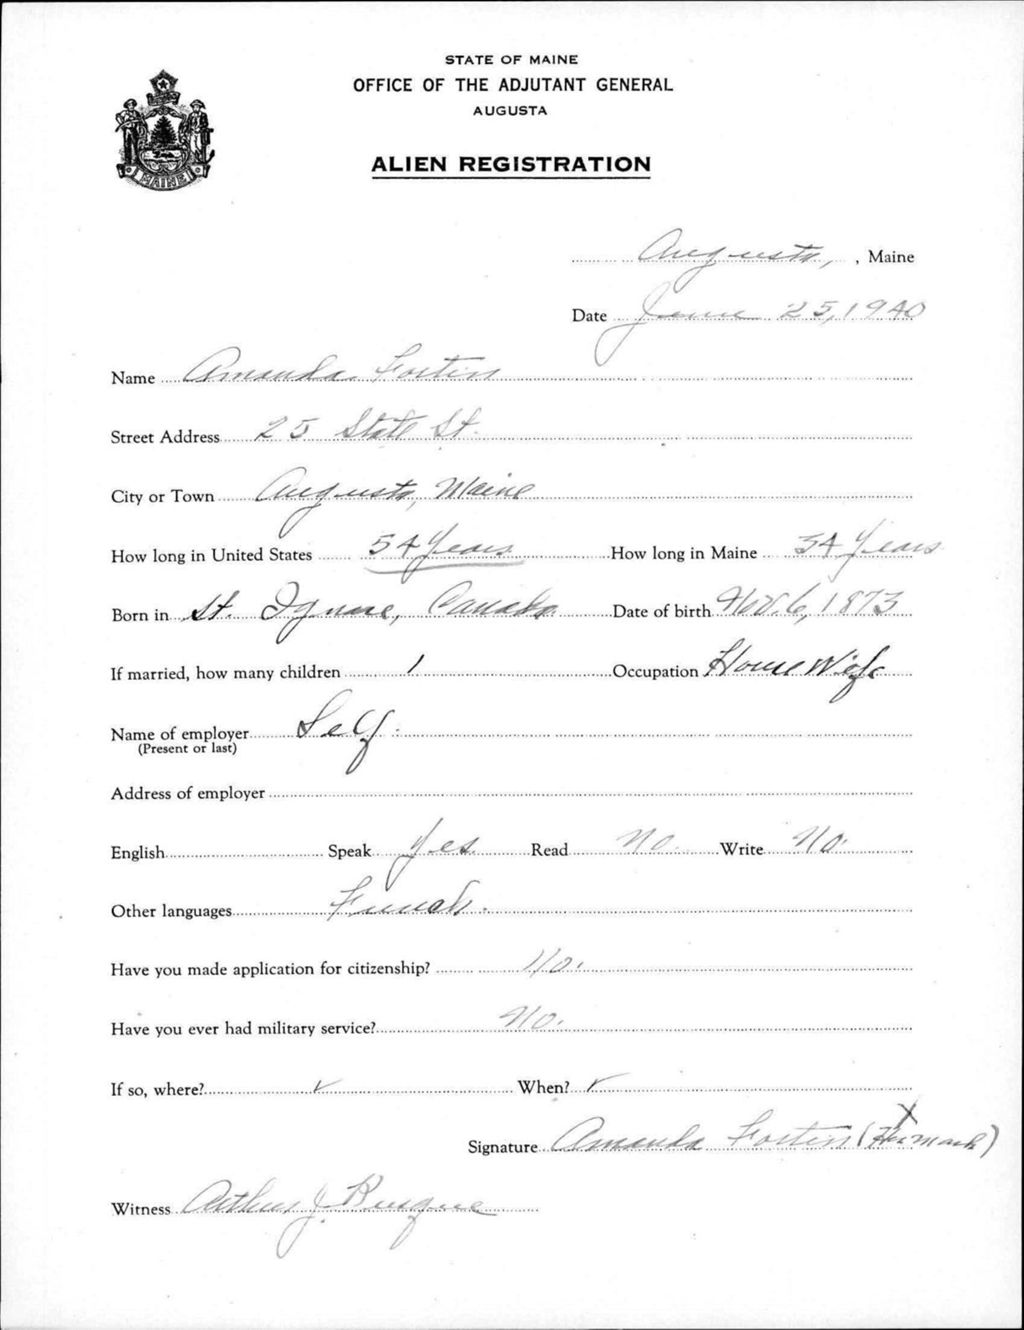 STATE OF MAINE
OFFICE OF THE ADJUTANT GENERAL
AUGUSTA
ALIEN REGISTRATION
MAINE
Augusta, , Maine
Date June 25, 1940
Name Amanda Fortin
Street Address 25 State St.
City or Town Augusta, Maine
How long in United States 54 Years How long in Maine 54 Years
Born in St. Ignase, Canada Date of birth Nov. 6, 1873
If married, how many children 1 Occupation House Wife
Name of employer Self.
(Present or last)
Address of employer
English Speak Yes Read No. Write No.
Other languages French.
Have you made application for citizenship? No.
Have you ever had military service? No.
If so, where? ✓ When? ✓
X
Signature Amanda Fortin (Her mark)
Witness Arthur J.